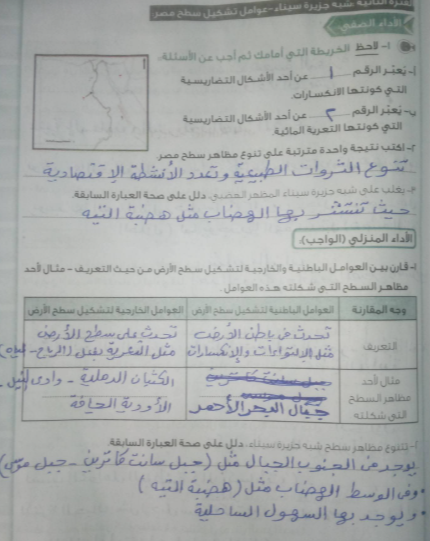 الفترة الثانية شبه جزيرة سيناء - عوامل تشكيل سطح مصر.
الأداء الصفي
١- لاحظ الخريطة التي أمامك ثم أجب عن الأسئلة.
أ- يُعبّر الرقم ١ عن أحد الأشكال التضاريسية
التي كونتها الانكسارات.
ب- يُعبّر الرقم ٢ عن أحد الأشكال التضاريسية
التي كونتها التعرية المائية.
٢- اكتب نتيجة واحدة مترتبة على تنوع مظاهر سطح مصر.
تنوع الثروات الطبيعية وتعدد الأنشطة الاقتصادية
٣- يغلب على شبه جزيرة سيناء المظهر الهضبي. دلل على صحة العبارة السابقة.
حيث تنتشر بها الهضاب مثل هضبة التيه
الأداء المنزلي (الواجب):
١- قارن بين العوامل الباطنية والخارجية لتشكيل سطح الأرض من حيث التعريف - مثال لأحد
مظاهر السطح التي شكلته هذه العوامل.
وجه المقارنة العوامل الباطنية لتشكيل سطح الأرض العوامل الخارجية لتشكيل سطح الأرض
التعريف تحدث في باطن الأرض تحدث على سطح الأرض
مثل الالتواءات والانكسارات مثل التعرية بفعل (الرياح - المياه)
مثال لأحد جبل سانت كاترين الكثبان الرملية - وادى النيل
مظاهر السطح جبل موسى
التي شكلته جبال البحر الأحمر الأودية الجافة
٢- تتنوع مظاهر سطح شبه جزيرة سيناء. دلل على صحة العبارة السابقة.
يوجد في الجنوب الجبال مثل (جبل سانت كاترين - جبل موسى)
• وفي الوسط الهضاب مثل (هضبة التيه)
• ويوجد بها السهول الساحلية